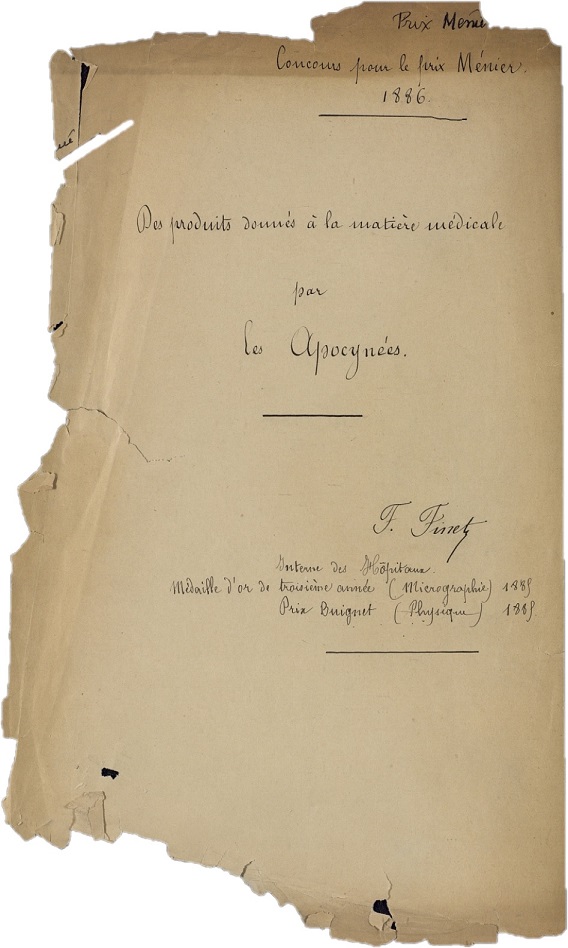 Prix Menie
Concours pour le prix Ménier.
1886.
Des produits donnés à la matière médicale
par
les Apocynées.
F. Finet
Interne des Hôpitaux.
Médaille d'or de troisième année (Micrographie) 1885
Prix Buignet (Physique) 1885